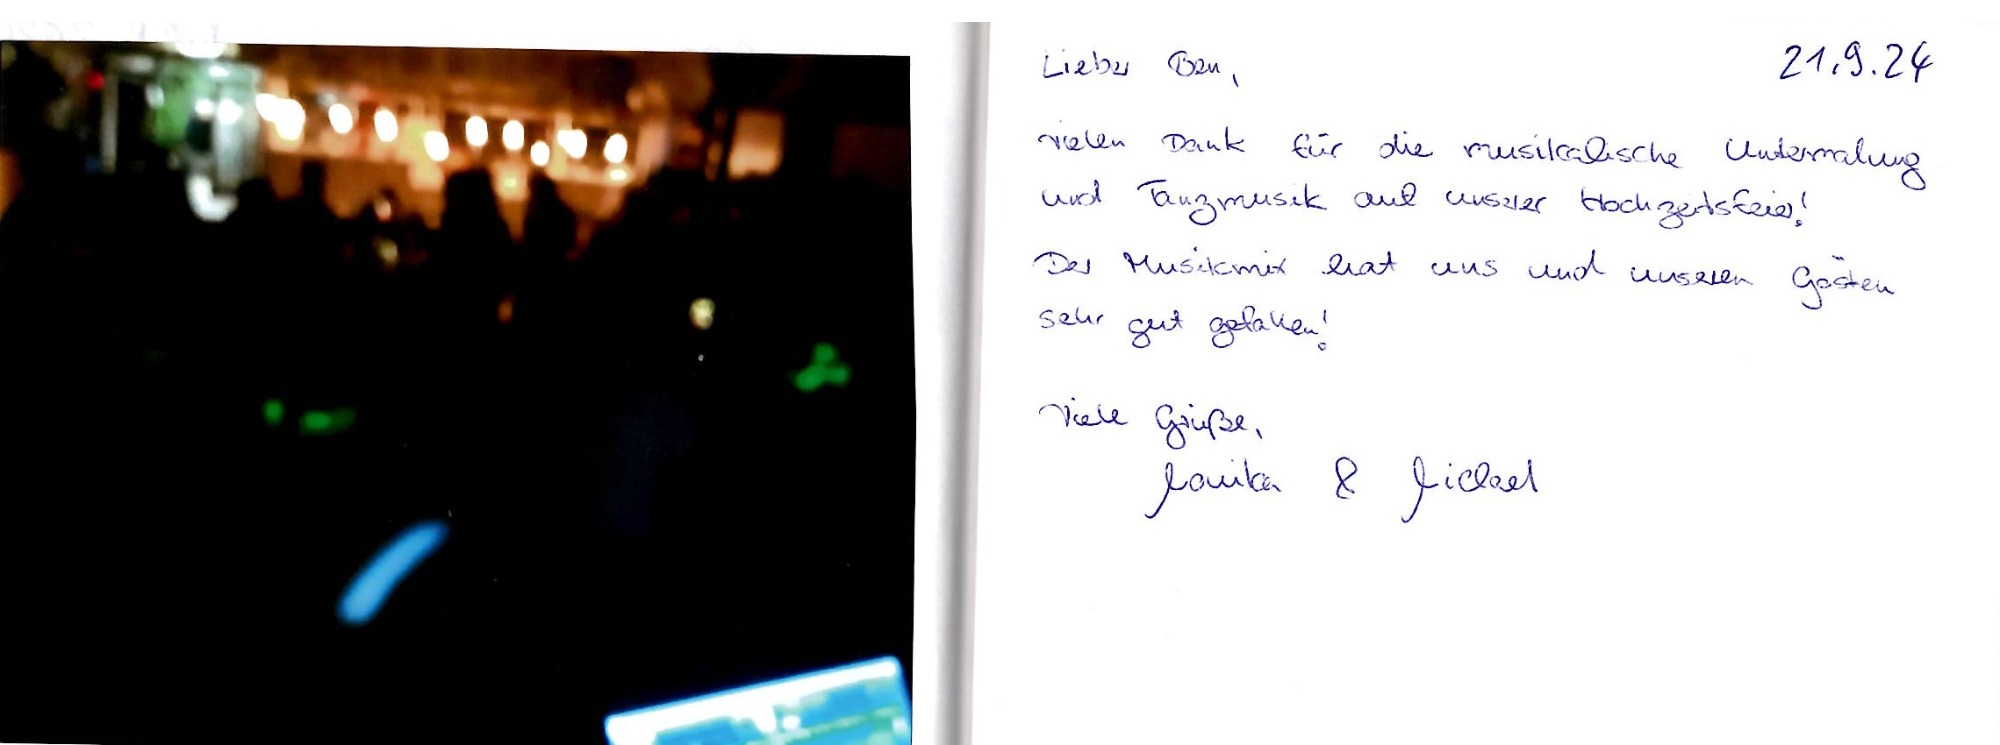 Lieber Ben, 21.9.24
vielen Dank für die musikalische Untermalung
und Tanzmusik auf unserer Hochzeitsfeier!
Der Musikmix hat uns und unseren Gästen
sehr gut gefallen!
Viele Grüße,
Monika & Michael